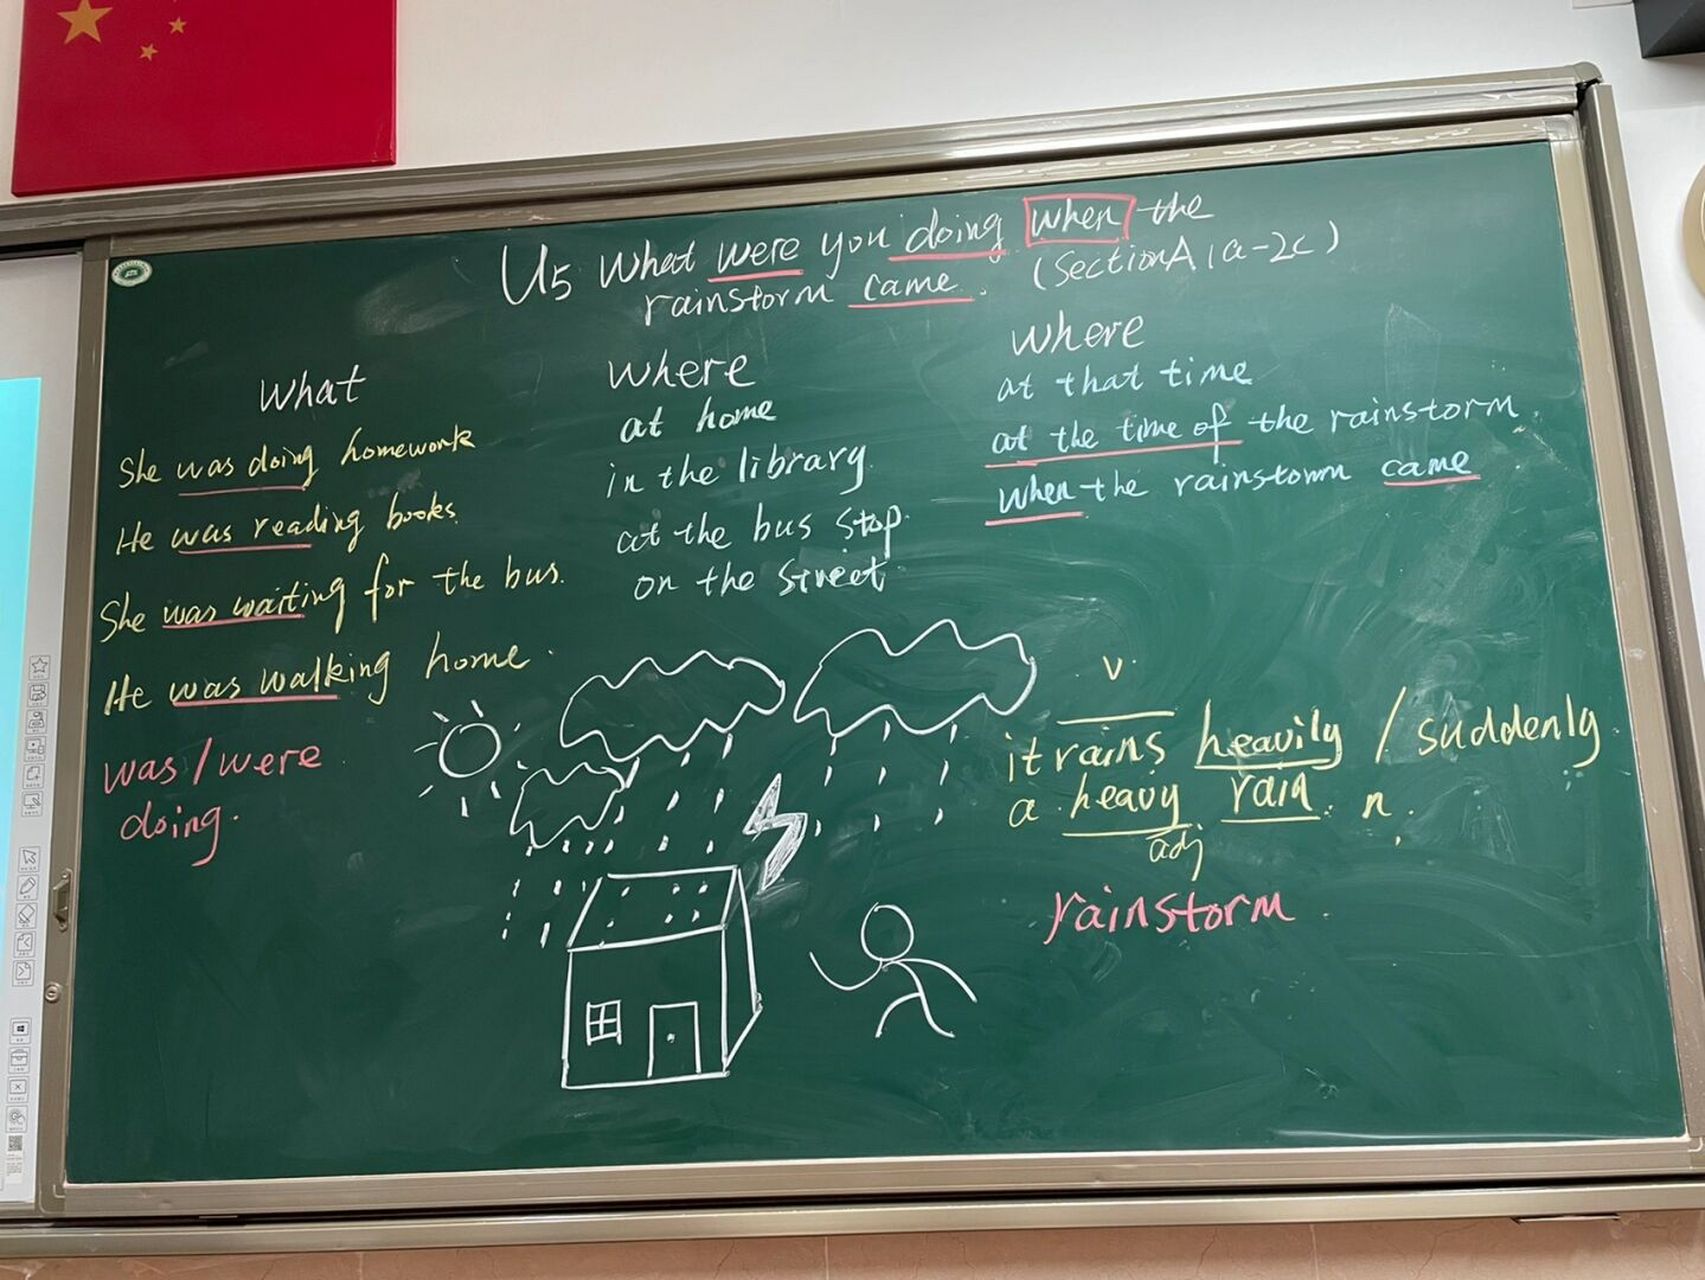 U5 What were you doing when the
rainstorm came. (Section A 1a-2c)
What
She was doing homework
He was reading books.
She was waiting for the bus.
He was walking home.
was/were
doing.
where
at home
in the library
at the bus stop.
on the street.
where
at that time
at the time of the rainstorm.
when the rainstorm came
v.
it rains heavily / suddenly.
a heavy rain. n.
adj
rainstorm.